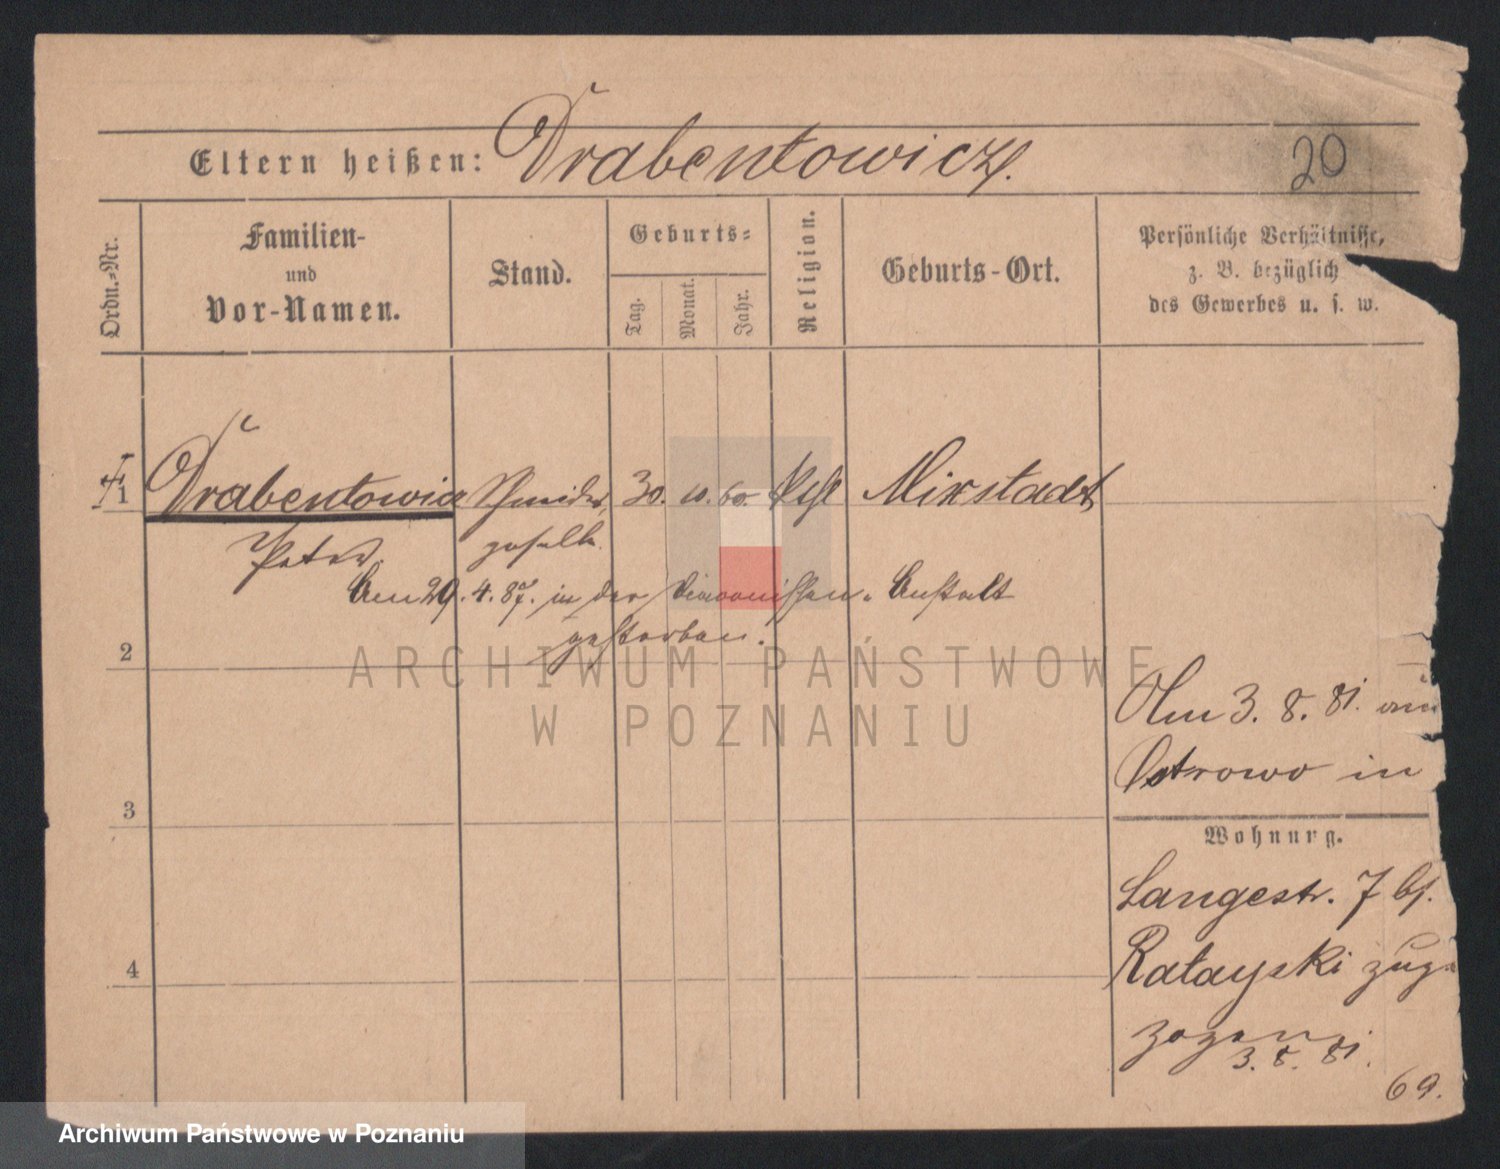 Eltern heißen: Drabentowicz.
20
Ordn.-Nr.
Familien-
und
Vor-Namen.
Stand.
Geburts-
Tag.
Monat.
Jahr.
Religion.
Geburts-Ort.
Persönliche Verhältnisse,
z. B. bezüglich
des Gewerbes u. s. w.
1 Drabentowicz Schneider, 30. 10. 60. Mixstadt
Peter. geselle.
Am 29. 4. 87. in der Diaconissen-Anstalt
gestorben.
2
ARCHIWUM PAŃSTWOWE
W POZNANIU
Am 3. 8. 81. aus
Ostrowo in
3
Wohnung.
Langestr. 7 bei
Ratayski zuge
4
zogen
3. 8. 81.
69.
Archiwum Państwowe w Poznaniu